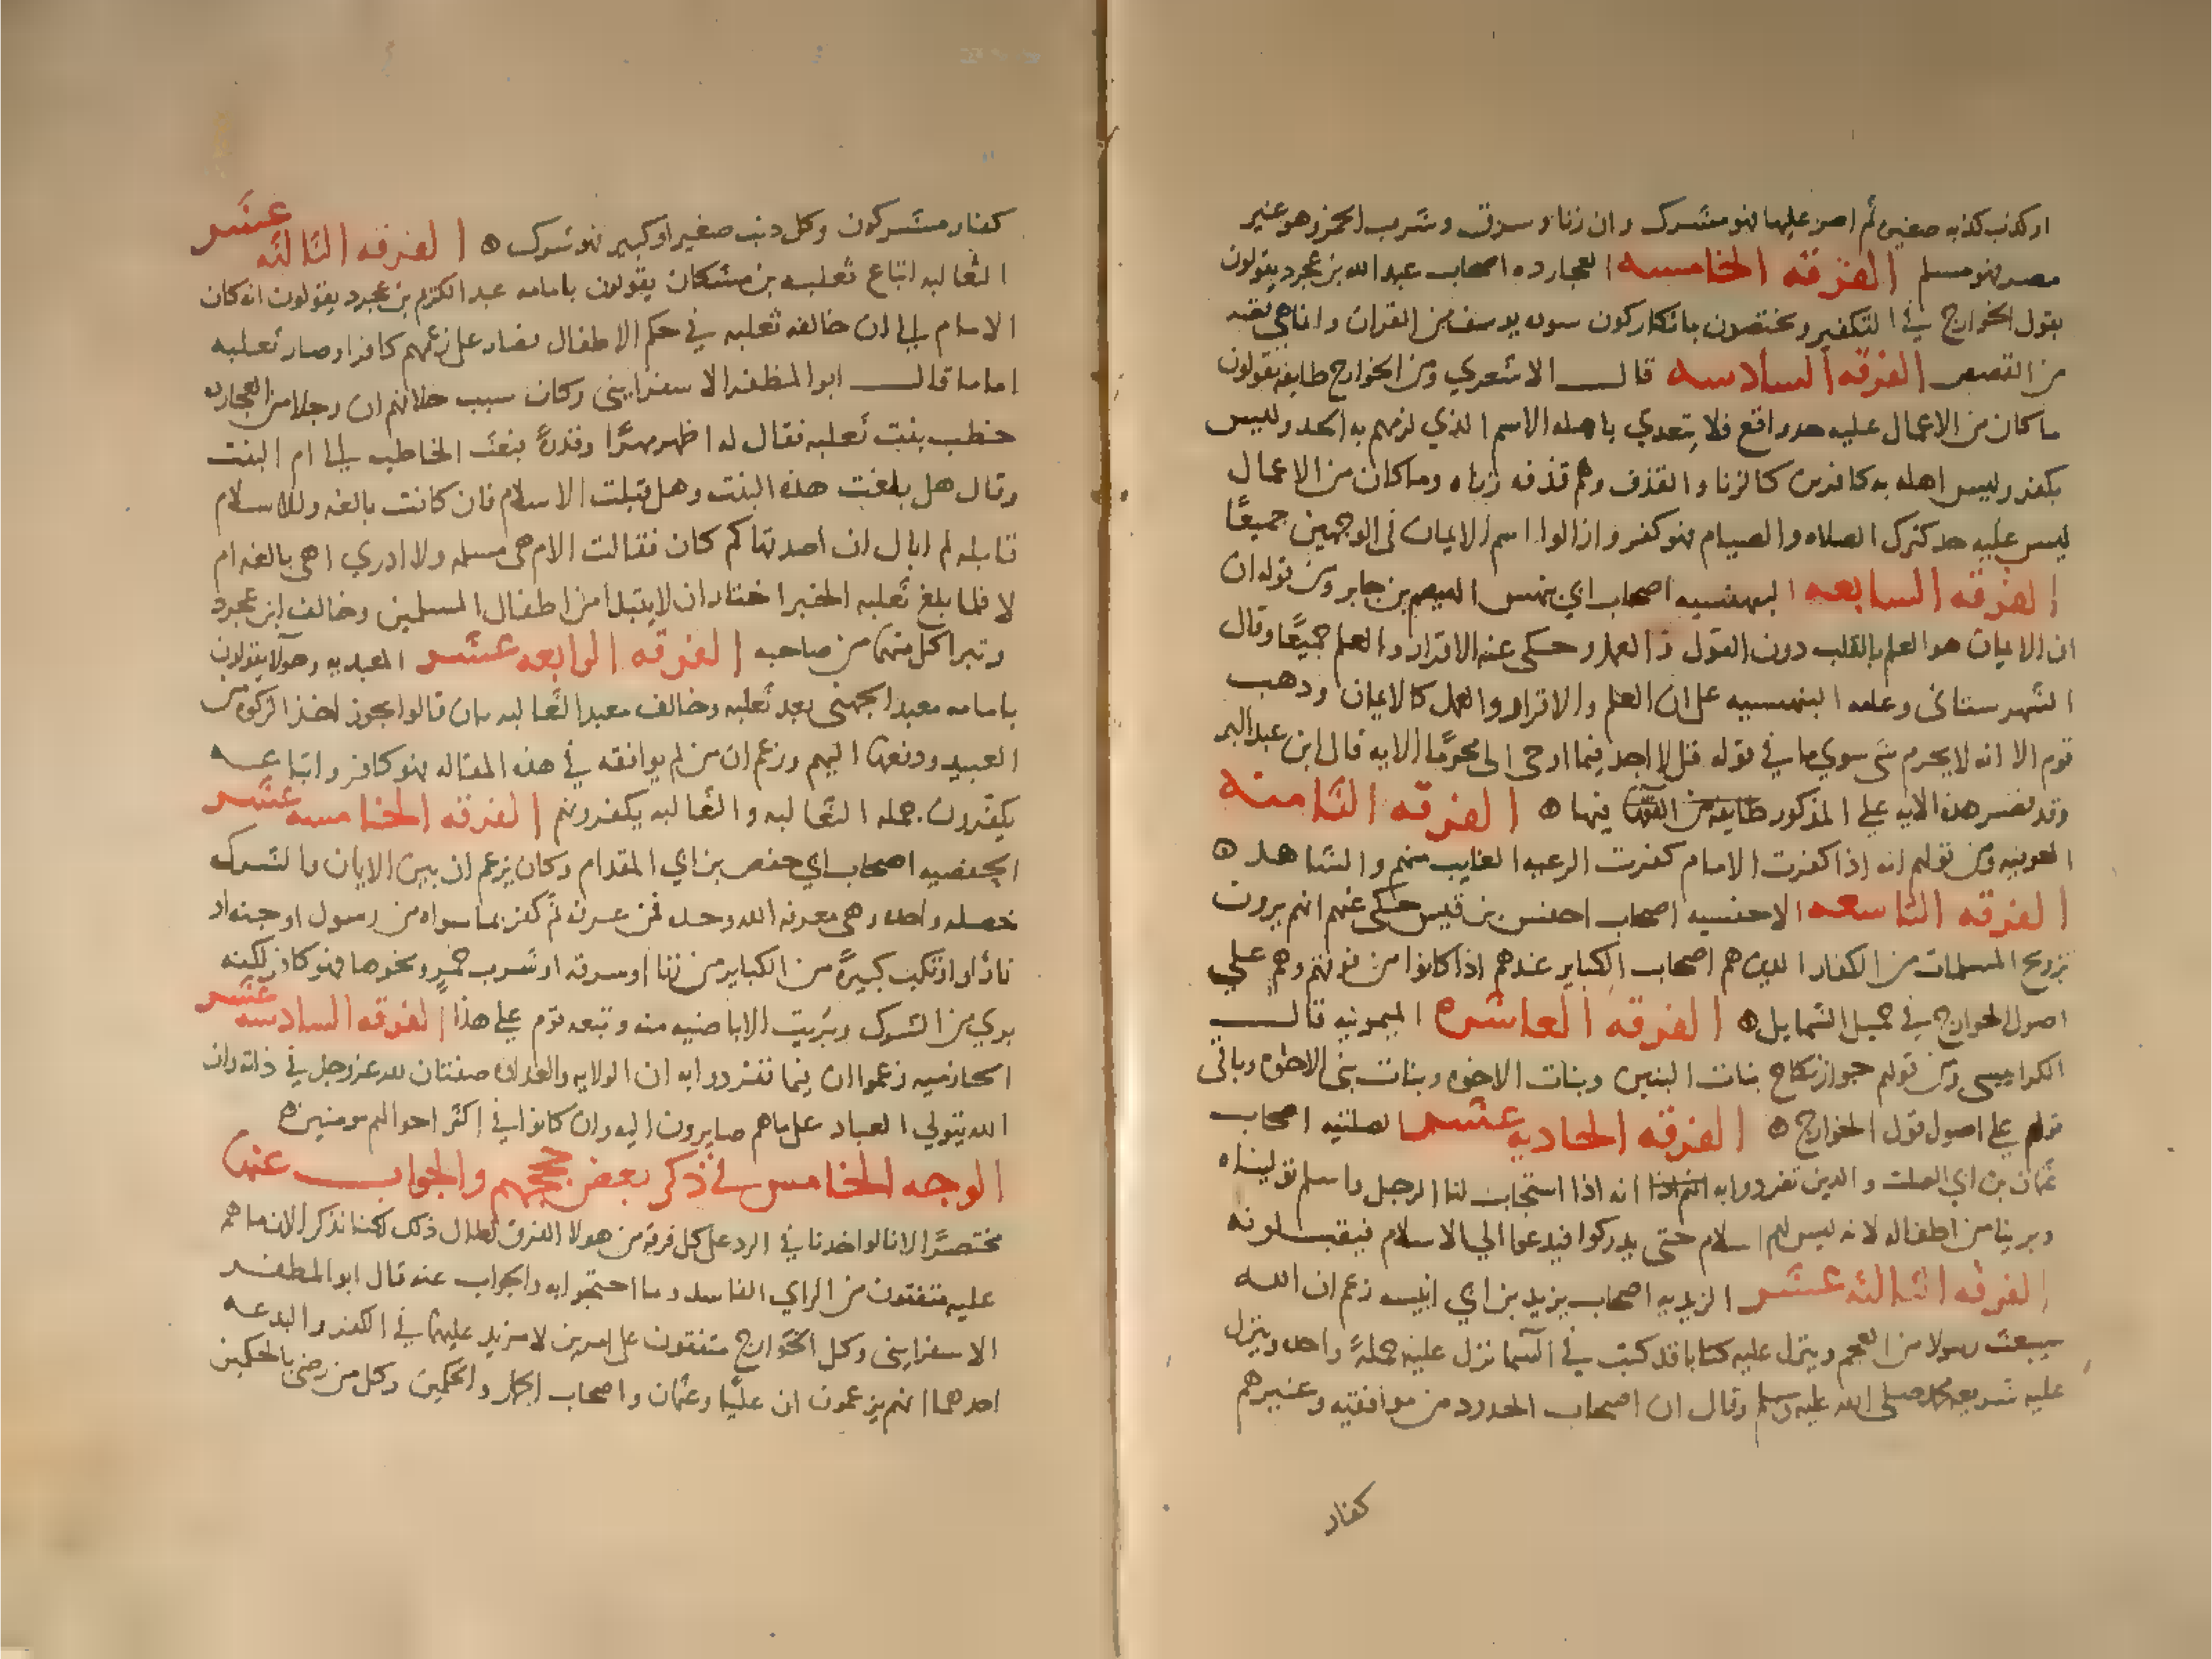 او كذب كذبه صغيره ثم اصر عليها فهو مشرك وان زنا وسرق وشرب الخمر وهو غير
مصر فهو مسلم الفرقه الخامسه العجارده اصحاب عبد الله بن عجرد يقولون
بقول الخوارج في التكفير ويختصون بانكار كون سوره يوسف من القران وانما هي قصه
من القصص الفرقه السادسه قال الاشعري ومن الخوارج طايفه يقولون
ما كان من الاعمال عليه حد واقع فلا يتعدي باهله الاسم الذي لزمهم به الحد وليس
بكفر وليس اهله به كافرين كالزنا والقذف وهم قذفه زناه وما كان من الاعمال
ليس عليه حد كترك الصلاه والصيام فهو كفر وازالوا اسم الايمان في الوجهين جميعًا
الفرقه السابعه البيهسيه اصحاب ابي بيهس الهيصم بن جابر ومن قوله ان
ان الايمان هو العلم بالقلب دون القول والعمل وحكى عنه الاقرار والعلم جميعًا وقال
الشهرستاني وعامه البيهسيه على ان العلم والاقرار والعمل كله ايمان وذهب
قوم الا انه لا يحرم شى سوي ما في قوله قل لا اجد فيما اوحى الى محرمًا الايه قال ابن عبد البر
وقد فسر هذه الايه علي المذكور طايفه من فيها الفرقه الثامنه
العونيه ومن قولهم انه اذا كفرت الامام كفرت الرعيه الغايب منهم والشاهد
الفرقه التاسعه الاحنسيه اصحاب احنس بن قيس حكى عنهم انهم يرون
تزويج المسلمات من الكفار الذين هم اصحاب الكباير عندهم اذا كانوا من قومهم وهم علي
اصول الخوارج في الفرقه العاشره الميمونيه قال
الكرابيسى ومن قولهم جواز نكاح بنات البنين وبنات الاخوه وبنات بنى الاخوه وباقى
قولهم علي اصول قول الخوارج الفرقه الحاديه عشر الصلتيه اصحاب
عثمان بن ابي الصلت والذين تفردوا به انه اذا استجاب لنا الرجل واسلم توليناه
وبرينا من اطفاله لانه ليس لهم اسلام حتى يدركوا فيدعوا الي الاسلام فيقبلونه
الفرقه الثالثه عشر الزيديه اصحاب يزيد بن ابي انيسه زعم ان الله
سيبعث رسولا من العجم وينزل عليه كتابا قد كتب في السما ينزل عليه جملةً واحده وينزل
عليه شريعه محمد صلى الله عليه وسلم وقال ان اصحاب الحدود من موافقيه وغيرهم
كفار
كفار مشركون وكل ذنب صغير او كبير فهو شرك الفرقه الثالثه عشر
الثعالبه اتباع ثعلبه بن مشكان يقولون بامامه عبد الكريم بن عجرد يقولون انه كان
الامام الي ان خالفه ثعلبه في حكم الاطفال فصار على زعمهم كافرا وصار ثعلبه
اماما قال ابو المظفر الاسفرايينى وكان سبب خلافهم ان رجلا من العجارده
خطب بنت ثعلبه فقال له اظهر مهرًا وقدرهً فبعث الخاطب الي ام البنت
وقال هل بلغت هذه البنت وهل قبلت الاسلام فان كانت بالغه وللاسلام
قابله لم ابال ان اصدقها كم كان فقالت الام هي مسلمه ولا ادري اهي بالغه ام
لا فلما بلغ ثعلبه الخبر اختار ان لا يتبرا من اطفال المسلمين وخالف ابن عجرد
وتبرا كل منهما من صاحبه الفرقه الرابعه عشر المعبديه وهولا يقولون
بامامه معبد الجهنى بعد ثعلبه وخالف معبد الثعالبه بان قالوا يجوز اخذ الزكوه من
العبيد ودفعها اليهم وزعم ان من لم يوافقه في هذه المقاله فهو كافر واتباعه
يكفرون جمله الثعالبه والثعالبه يكفرونهم الفرقه الخامسه عشر
الحفصيه اصحاب ابي حفص بن ابي المقدام وكان يزعم ان بين الايمان والشرك
خصله واحده وهى معرفه الله وحده فمن عرفه ثم كفر بما سواه من رسول او جنه او
نار او ارتكب كبيرةً من الكباير من زنا او سرقه او شرب خمرٍ ونحوها فهو كافر لكنه
بري من الشرك وبرئت الاباضيه منه وتبعه قوم علي هذا الفرقه السادسه عشر
الحازميه زعموا ان فيما تفردوا به ان الولايه والعداوه صفتان لله عز وجل في ذاته وان
الله يتولي العباد على ما هم صايرون اليه وان كانوا في اكثر احوالهم مومنين
الوجه الخامس في ذكر بعض حججهم والجواب عنها
مختصرًا لانا لو اخذنا في الرد على كل فرقه من هولا الفرق لطال ذلك لكنا نذكر الان ما هم
عليه متفقون من الراي الفاسد وما احتجوا به والجواب عنه قال ابو المظفر
الاسفرايينى وكل الخوارج متفقون على امرين لا مزيد عليهما في الكفر والبدعه
احدهما انهم يزعمون ان عليًا وعثمان واصحاب الجمل والحكمين وكل من رضي بالحكمين